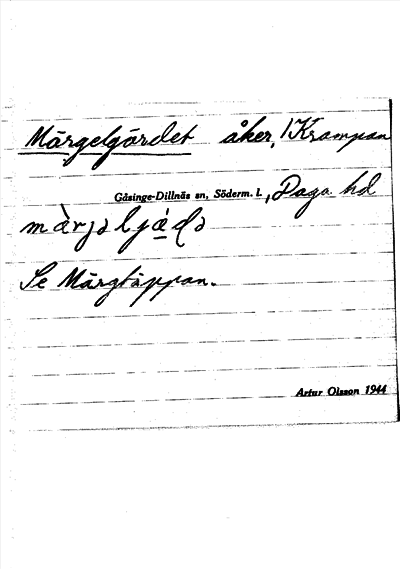 Märgelgärdet åker, /Krampan
Gåsinge-Dillnäs sn, Söderm. l., Daga hd
Se Märgtäppan.
Artur Olsson 1944